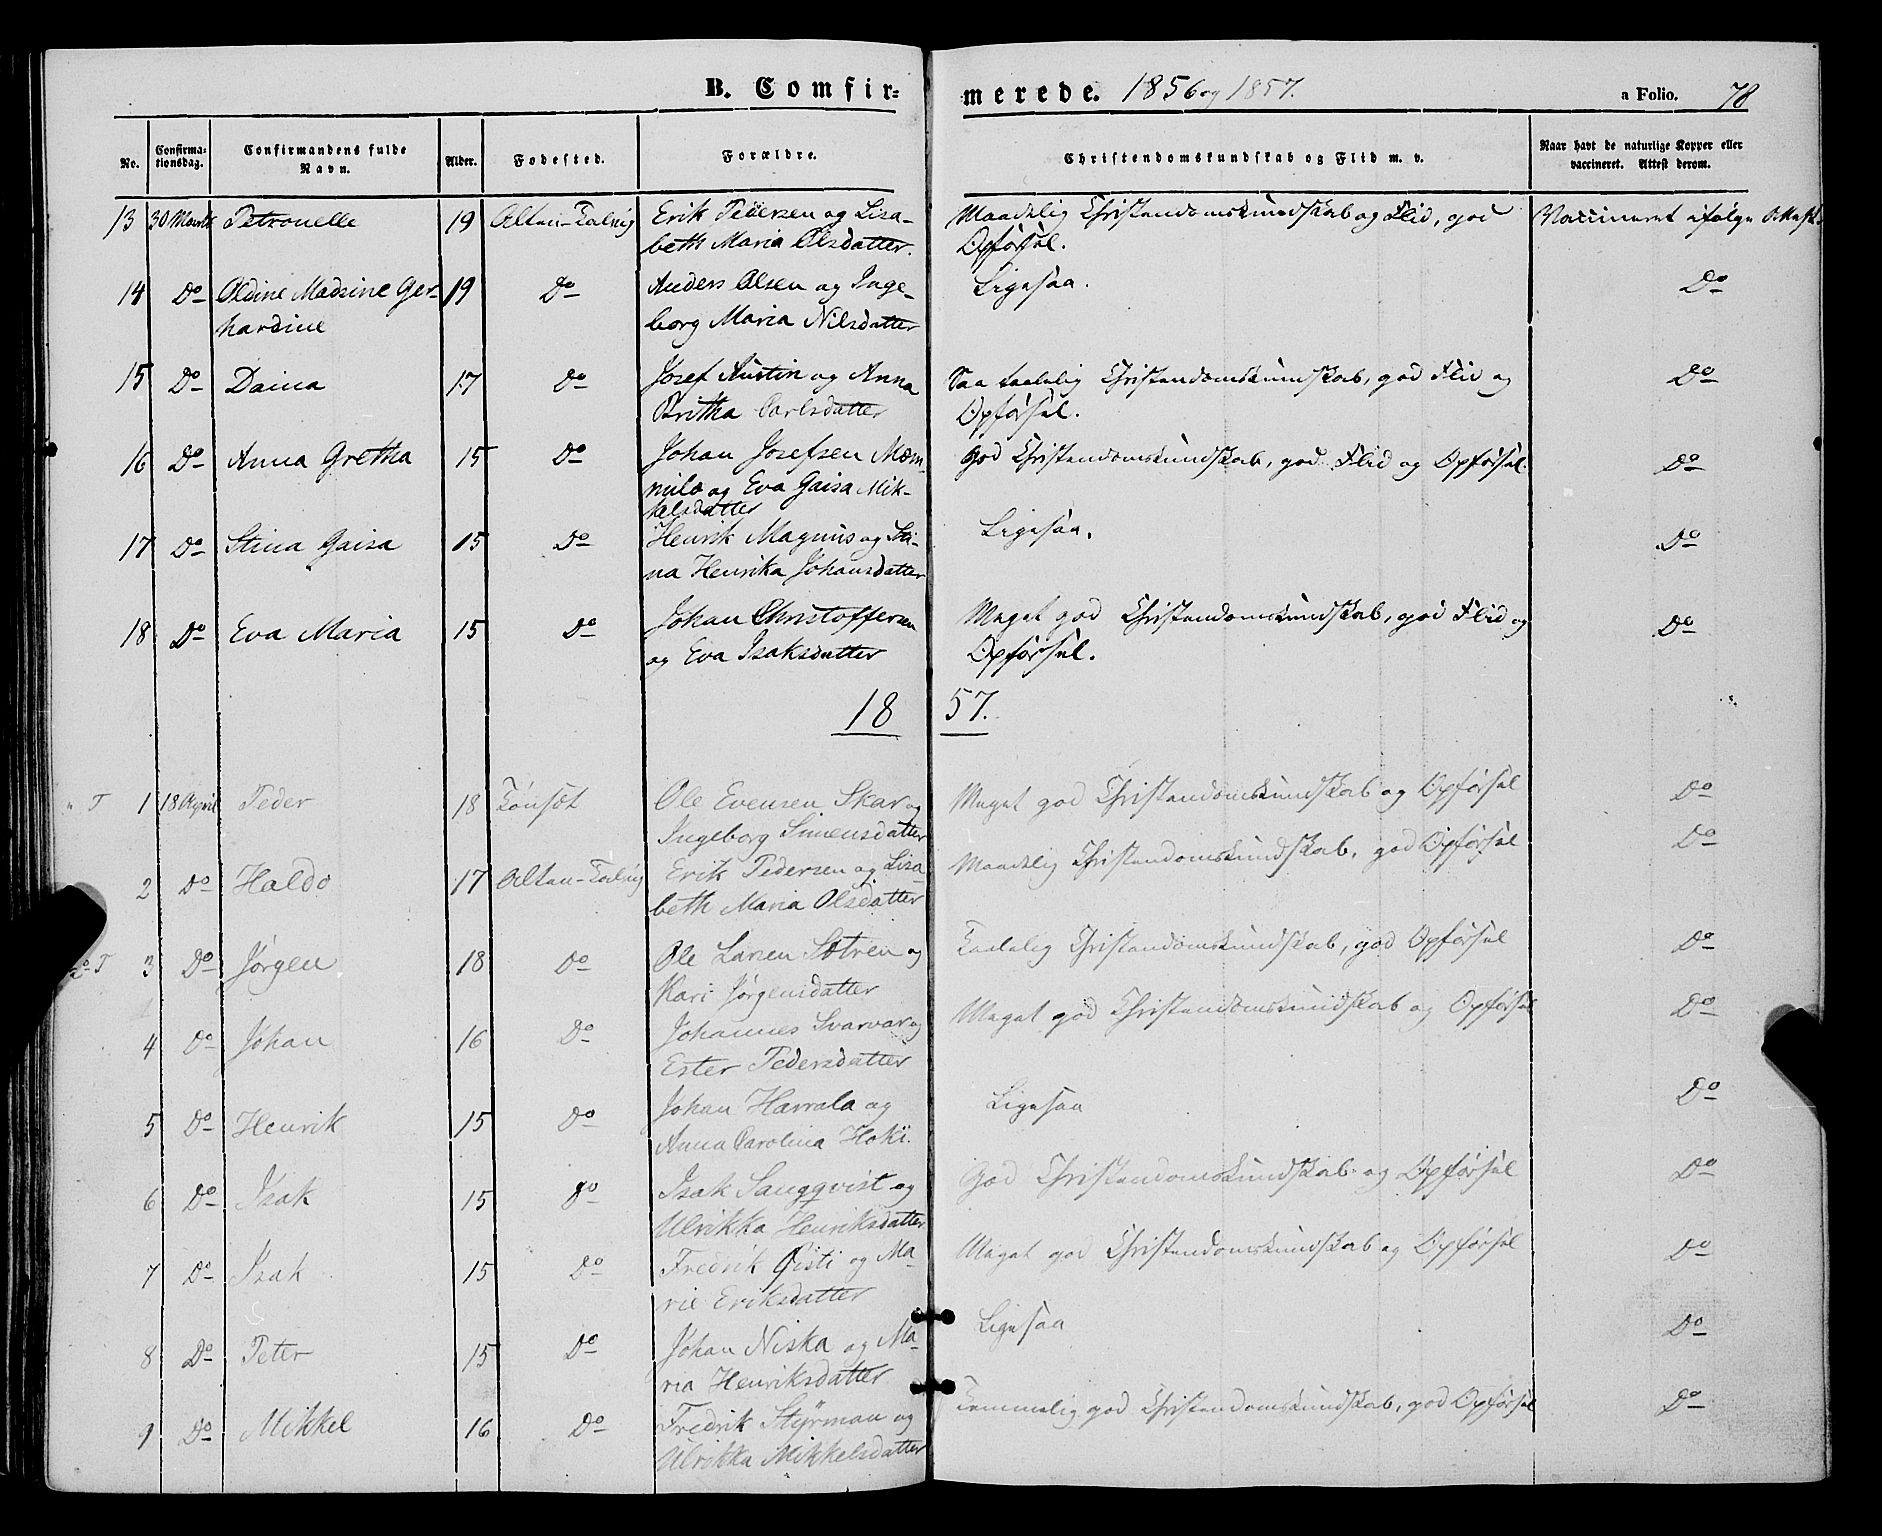 B. Comfirmerede. 1856 og 1857. a Folio. 78
No. Confirmationsdag. Confirmandens fulde Navn. Alder. Fødested. Forældre. Christendomskundskab og Flid m. v. Naar havt de naturlige Kopper eller vaccineret. Attest derom.
13 30 Marts Petronelle 19 Alten-Talvig Erik Pedersen og Lisa- Maadelig Christendomskundskab og Flid, god Vaccineret ifølge Attest.
beth Maria Olsdatter. Opførsel.
14 Do Oldine Madsine Ger- 19 Do Anders Olsen og Inge- Ligesaa. Do
hardine borg Maria Nilsdatter
15 Do Daina 17 Do Josef Austin og Anna Saa taalelig Christendomskundskab, god Flid og Do
Britha Carlsdatter Opførsel.
16 Do Anna Gretha 15 Do Johan Josefsen Mæm- God Christendomskundskab, god Flid og Opførsel. Do
milæ og Eva Gaisa Mik-
kelsdatter
17 Do Stina Gaisa 15 Do Henrik Magnus og Sti- Ligesaa. Do
na Henrika Johansdatter
18 Do Eva Maria 15 Do Johan Christoffersen Meget god Christendomskundskab, god Flid og Do
og Eva Isaksdatter Opførsel.
1857.
" T 1 18 April Peder 18 Tønset Ole Evensen Skar og Meget god Christendomskundskab og Opførsel Do
Ingeborg Simensdatter
2 Do Haldo 17 Alten-Talvig Erik Pedersen og Lisa- Maadelig Christendomskundskab, god Opførsel Do
beth Maria Olsdatter
T 3 Do Jørgen 18 Do Ole Larsen Sætren og Taalelig Christendomskundskab, god Opførsel Do
Kari Jørgensdatter
4 Do Johan 16 Do Johannes Svarvar og Meget god Christendomskundskab og Opførsel Do
Ester Pedersdatter
5 Do Henrik 15 Do Johan Harrala og Ligesaa Do
Anna Carolina Hoki.
6 Do Isak 15 Do Isak Sangqvist og God Christendomskundskab og Opførsel Do
Ulrikka Henriksdatter
7 Do Isak 15 Do Fredrik Qisti og Ma- Meget god Christendomskundskab og Opførsel Do
rie Eriksdatter
8 Do Peter 15 Do Johan Niska og Ma- Ligesaa Do
ria Henriksdatter
9 Do Mikkel 16 Do Fredrik Styrman og Temmelig god Christendomskundskab, god Opførsel Do
Ulrikka Mikkelsdatter